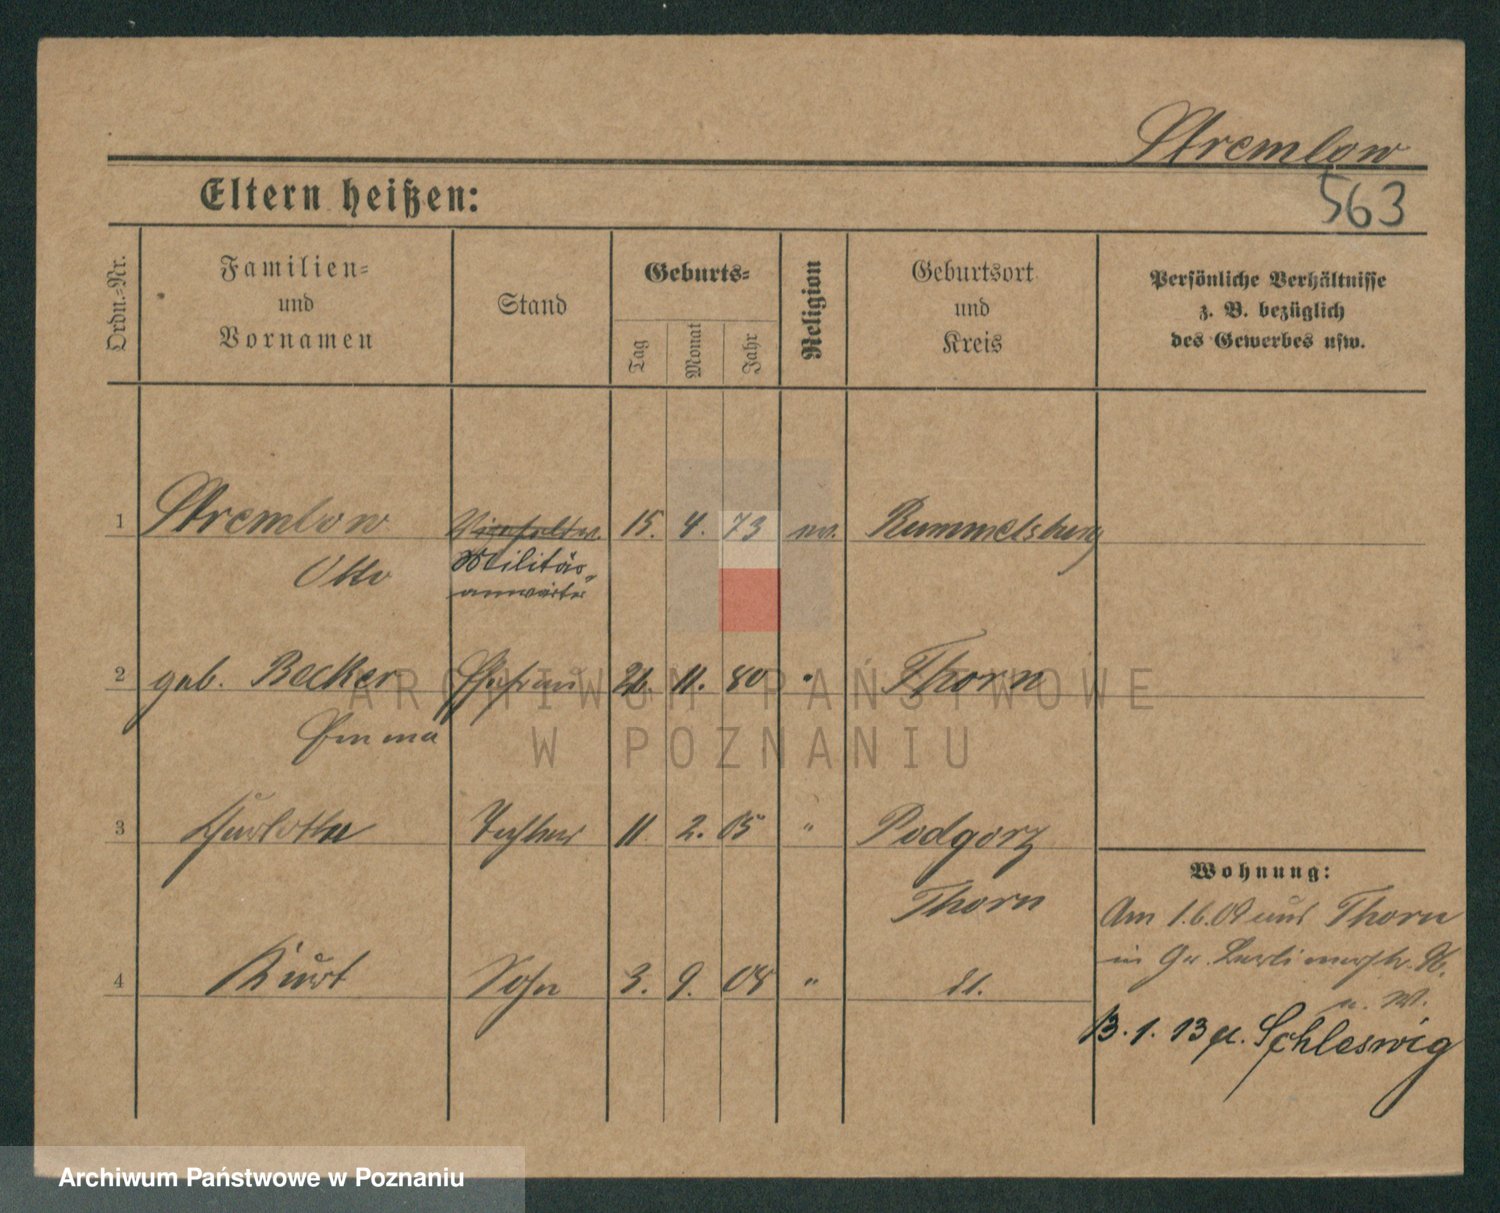 Stremlow
563
Eltern heißen:
Ordn.-Nr.
Familien-
und
Vornamen
Stand
Geburts-
Tag
Monat
Jahr
Religion
Geburtsort
und
Kreis
Persönliche Verhältnisse
z. B. bezüglich
des Gewerbes usw.
1 Stremlow 15. 4. 73 ev. Rummelsburg
Otto Militär-
anwärter
2 geb. Becker Ehefrau 26. 11. 80 " Thorn
Emma
3 Tochter 11 2. 05 " Podgorz
Thorn
4 Kurt Sohn 3. 9. 08 " d.
Wohnung:
Am 1.6.09 aus Thorn
in Gr. Berlinerstr. 96.
n. W.
13. 1. 13 n. Schleswig
ARCHIWUM PAŃSTWOWE
W POZNANIU
Archiwum Państwowe w Poznaniu